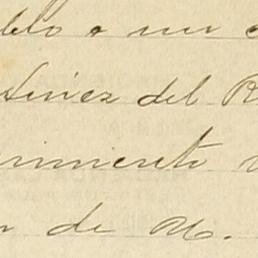 blo a un
tinez del R
rimiento
n de M.